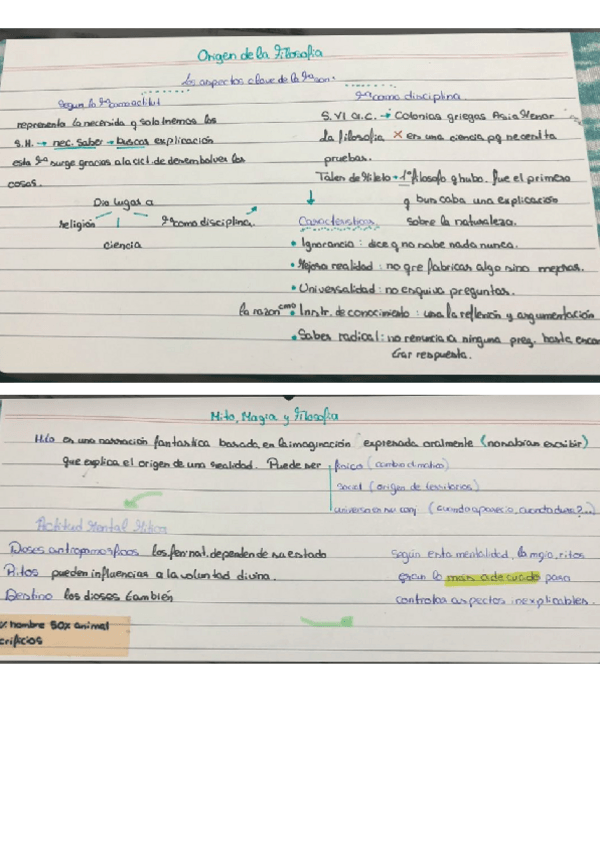 Origen de la Filosofia
Los aspectos clave de la Fª son:
Según la Fª como actitud
representa la necesida q solo tnemos los
S.H. → nec. saber → buscas explicación
esta Fª surge gracias a la act. de desembolver las
cosas.
Da lugar a
religión
ciencia
Fª como disciplina.
Fª como disciplina.
S. VI a.C. → Colonias griegas Asia Menor
La filosofia X es una ciencia pq necesita
pruebas.
Tales de Mileto → 1º filosofo q hubo. fue el primero
q buscaba una explicación
sobre la naturaleza.
Características
• Ignorancia: dice q no sabe nada nunca.
• Mejora realidad: no qre fabricar algo sino mejorar.
• Universalidad: no esquiva preguntas.
la razon cmo • Instr. de conocimiento: usa la reflexión y argumentación
• Saber radical: no renuncia a ninguna preg. hasta encon
trar respuesta.
Mito, Magia y Filosofia
Mito es una narración fantastica basada en la imaginación expresada oralmente (no sabian escribir)
que explica el origen de una realidad. Puede ser
físico (cambio climatico)
social (origen de territorios)
universo en su conj. (cuando aparecio, cuanto dura?...)
Actitud Mental Mitica
Dioses antropomorficos los fen. nat. dependen de su estado
Ritos pueden influencias a la voluntad divina.
Destino los dioses también
Según esta mentalidad, la magia, ritos
eran lo mas adecuado para
controlar aspectos inexplicables.
hombre 50x animal
crificios